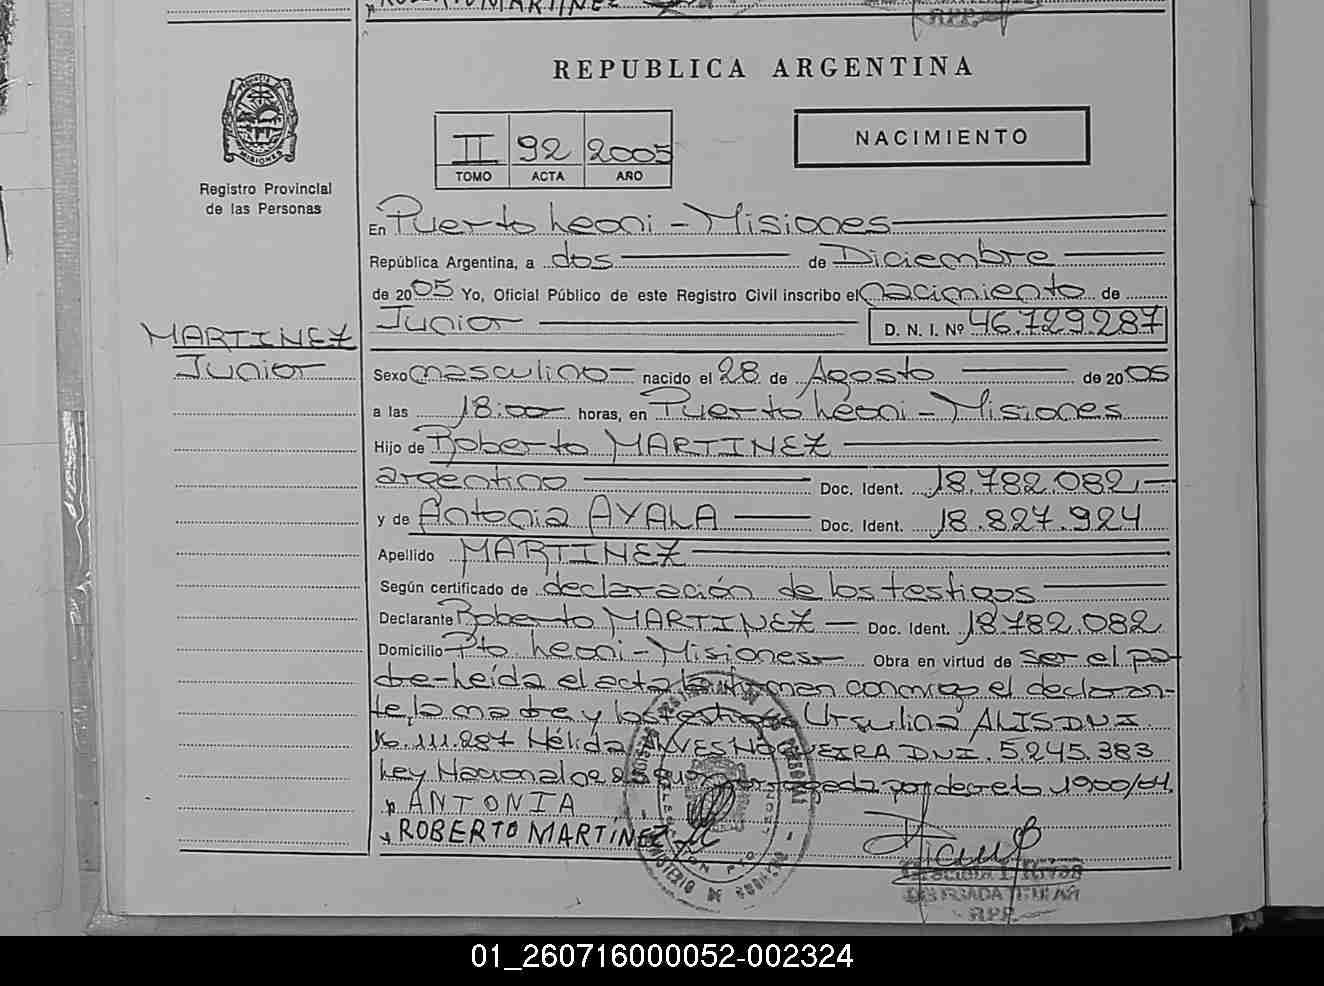 ROBERTO MARTINEZ
RPP.
REPUBLICA ARGENTINA
PROVINCIA
MISIONES
Registro Provincial
de las Personas
II 92 2005
TOMO ACTA AÑO
NACIMIENTO
En Puerto Leoni - Misiones
República Argentina, a dos de Diciembre
de 2005 Yo, Oficial Público de este Registro Civil inscribo el nacimiento de
Junior D. N. I. Nº 46.729.287
MARTINEZ
Junior
Sexo masculino nacido el 28 de Agosto de 2005
a las 18:00 horas, en Puerto Leoni - Misiones
Hijo de Roberto MARTINEZ
argentino Doc. Ident. 18.782.082
y de Antonia AYALA Doc. Ident. 18.827.924
Apellido MARTINEZ
Según certificado de declaración de los testigos
Declarante Roberto MARTINEZ Doc. Ident. 18.782.082
Domicilio Pto. Leoni - Misiones Obra en virtud de ser el pa-
dre - Leída el acta la firman conmigo el declaran-
te, la madre y los testigos Ursulina ALIS DNI.
16.111.287 Nélida ALVES NOGUEIRA DNI. 5.245.383
Ley Nacional prorrogada por decreto 1900/04.
ANTONIA
ROBERTO MARTÍNEZ
Graciela I. Rivas
DELEGADA TITULAR
RPP.
01_260716000052-002324